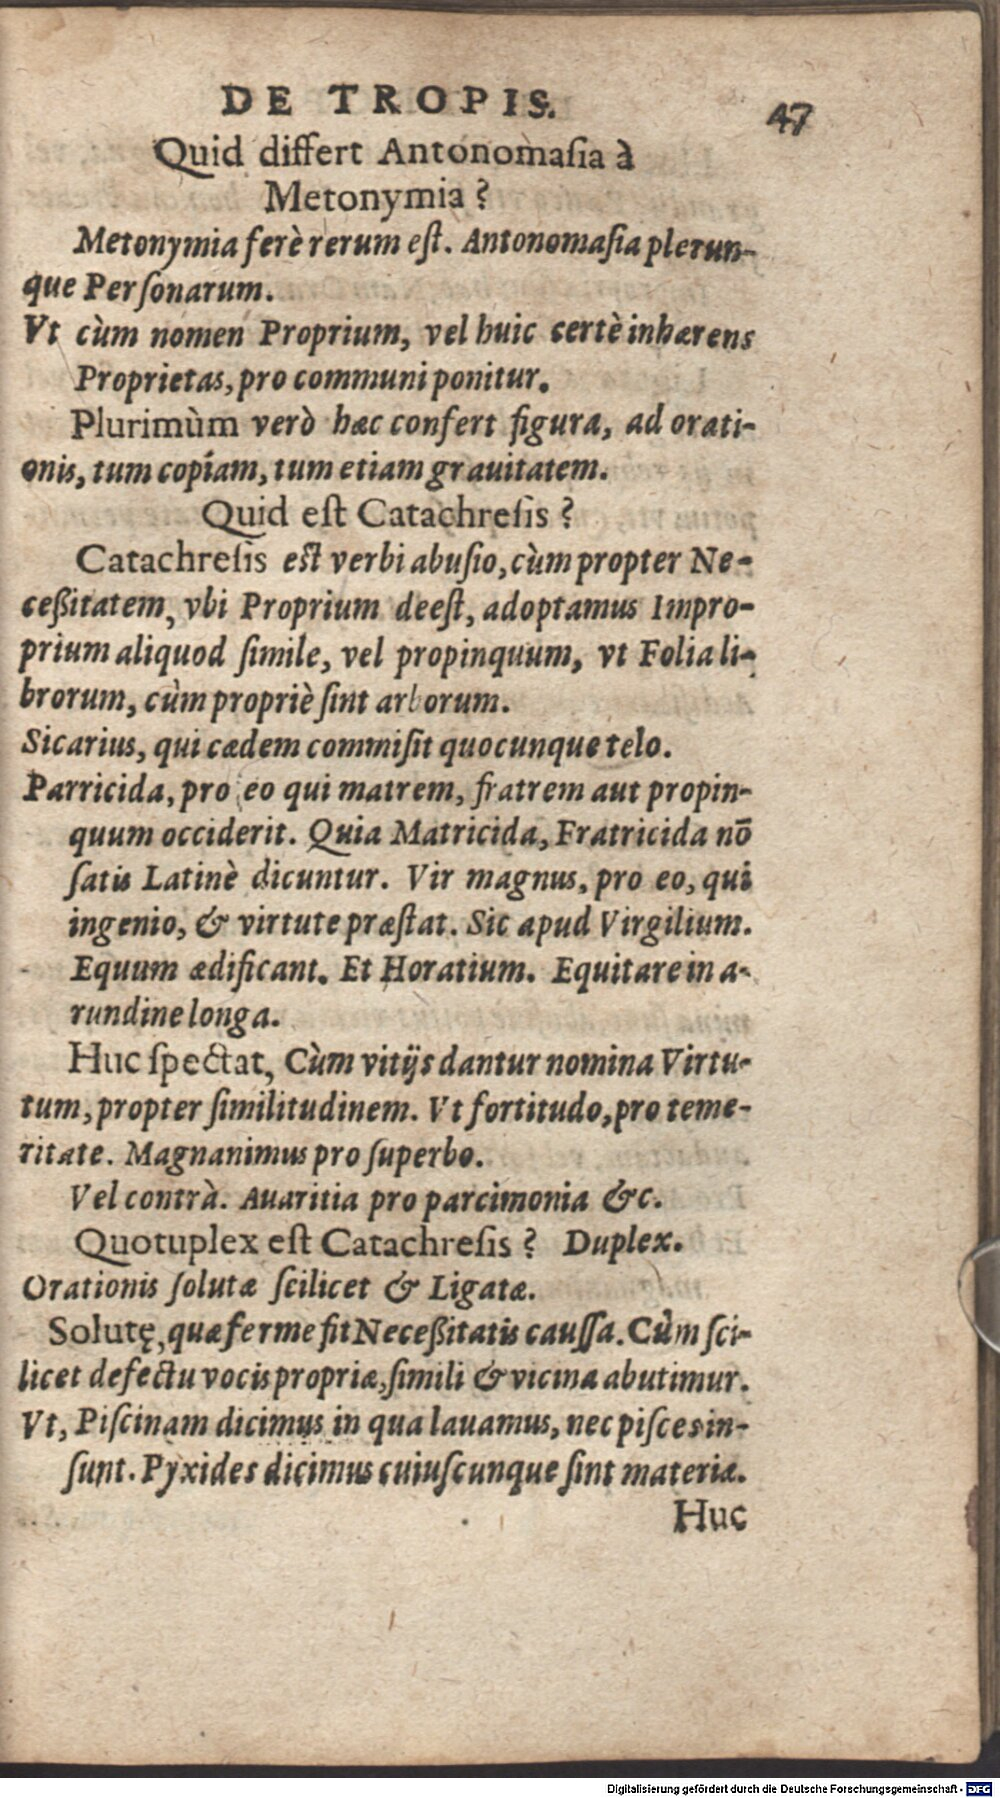 DE TROPIS.
47
Quid differt Antonomasia à
Metonymia ?
Metonymia ferè rerum eſt. Antonomaſia plerun-
que Perſonarum.
Vt cùm nomen Proprium, vel huic certè inhærens
Proprietas, pro communi ponitur.
Plurimùm verò hæc confert figura, ad orati-
onis, tum copiam, tum etiam grauitatem.
Quid eſt Catachreſis ?
Catachreſis eſt verbi abuſio, cùm propter Ne-
ceßitatem, vbi Proprium deeſt, adoptamus Impro-
prium aliquod ſimile, vel propinquum, vt Folia li-
brorum, cùm propriè ſint arborum.
Sicarius, qui cædem commiſit quocunque telo.
Parricida, pro eo qui matrem, fratrem aut propin-
quum occiderit. Quia Matricida, Fratricida nō
ſatis Latinè dicuntur. Vir magnus, pro eo, qui
ingenio, & virtute præſtat. Sic apud Virgilium.
Equum ædificant. Et Horatium. Equitare in a-
rundine longa.
Huc ſpectat, Cùm vitijs dantur nomina Virtu-
tum, propter ſimilitudinem. Vt fortitudo, pro teme-
ritate. Magnanimus pro ſuperbo.
Vel contrà. Auaritia pro parcimonia &c.
Quotuplex eſt Catachreſis ? Duplex.
Orationis ſolutæ ſcilicet & Ligatæ.
Solutę, quæ ferme fit Neceßitatis cauſſa. Cùm ſci-
licet defectu vocis propriæ, ſimili & vicina abutimur.
Vt, Piſcinam dicimus in qua lauamus, nec piſces in-
ſunt. Pyxides dicimus cuiuſcunque ſint materiæ.
Huc
Digitalisierung gefördert durch die Deutsche Forschungsgemeinschaft - DFG